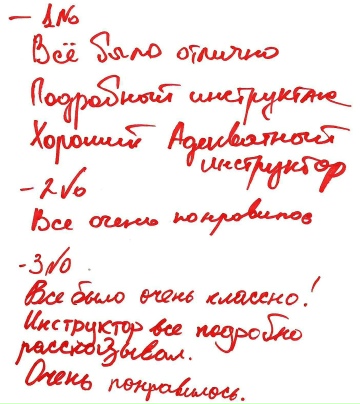 - 1№
Всё было отлично
Подробный инструктаж
Хороший Адекватный
инструктор
- 2№
Все очень понравилос
- 3№
Все было очень классно!
Инструктор все подробно
рассказывал.
Очень понравилось.